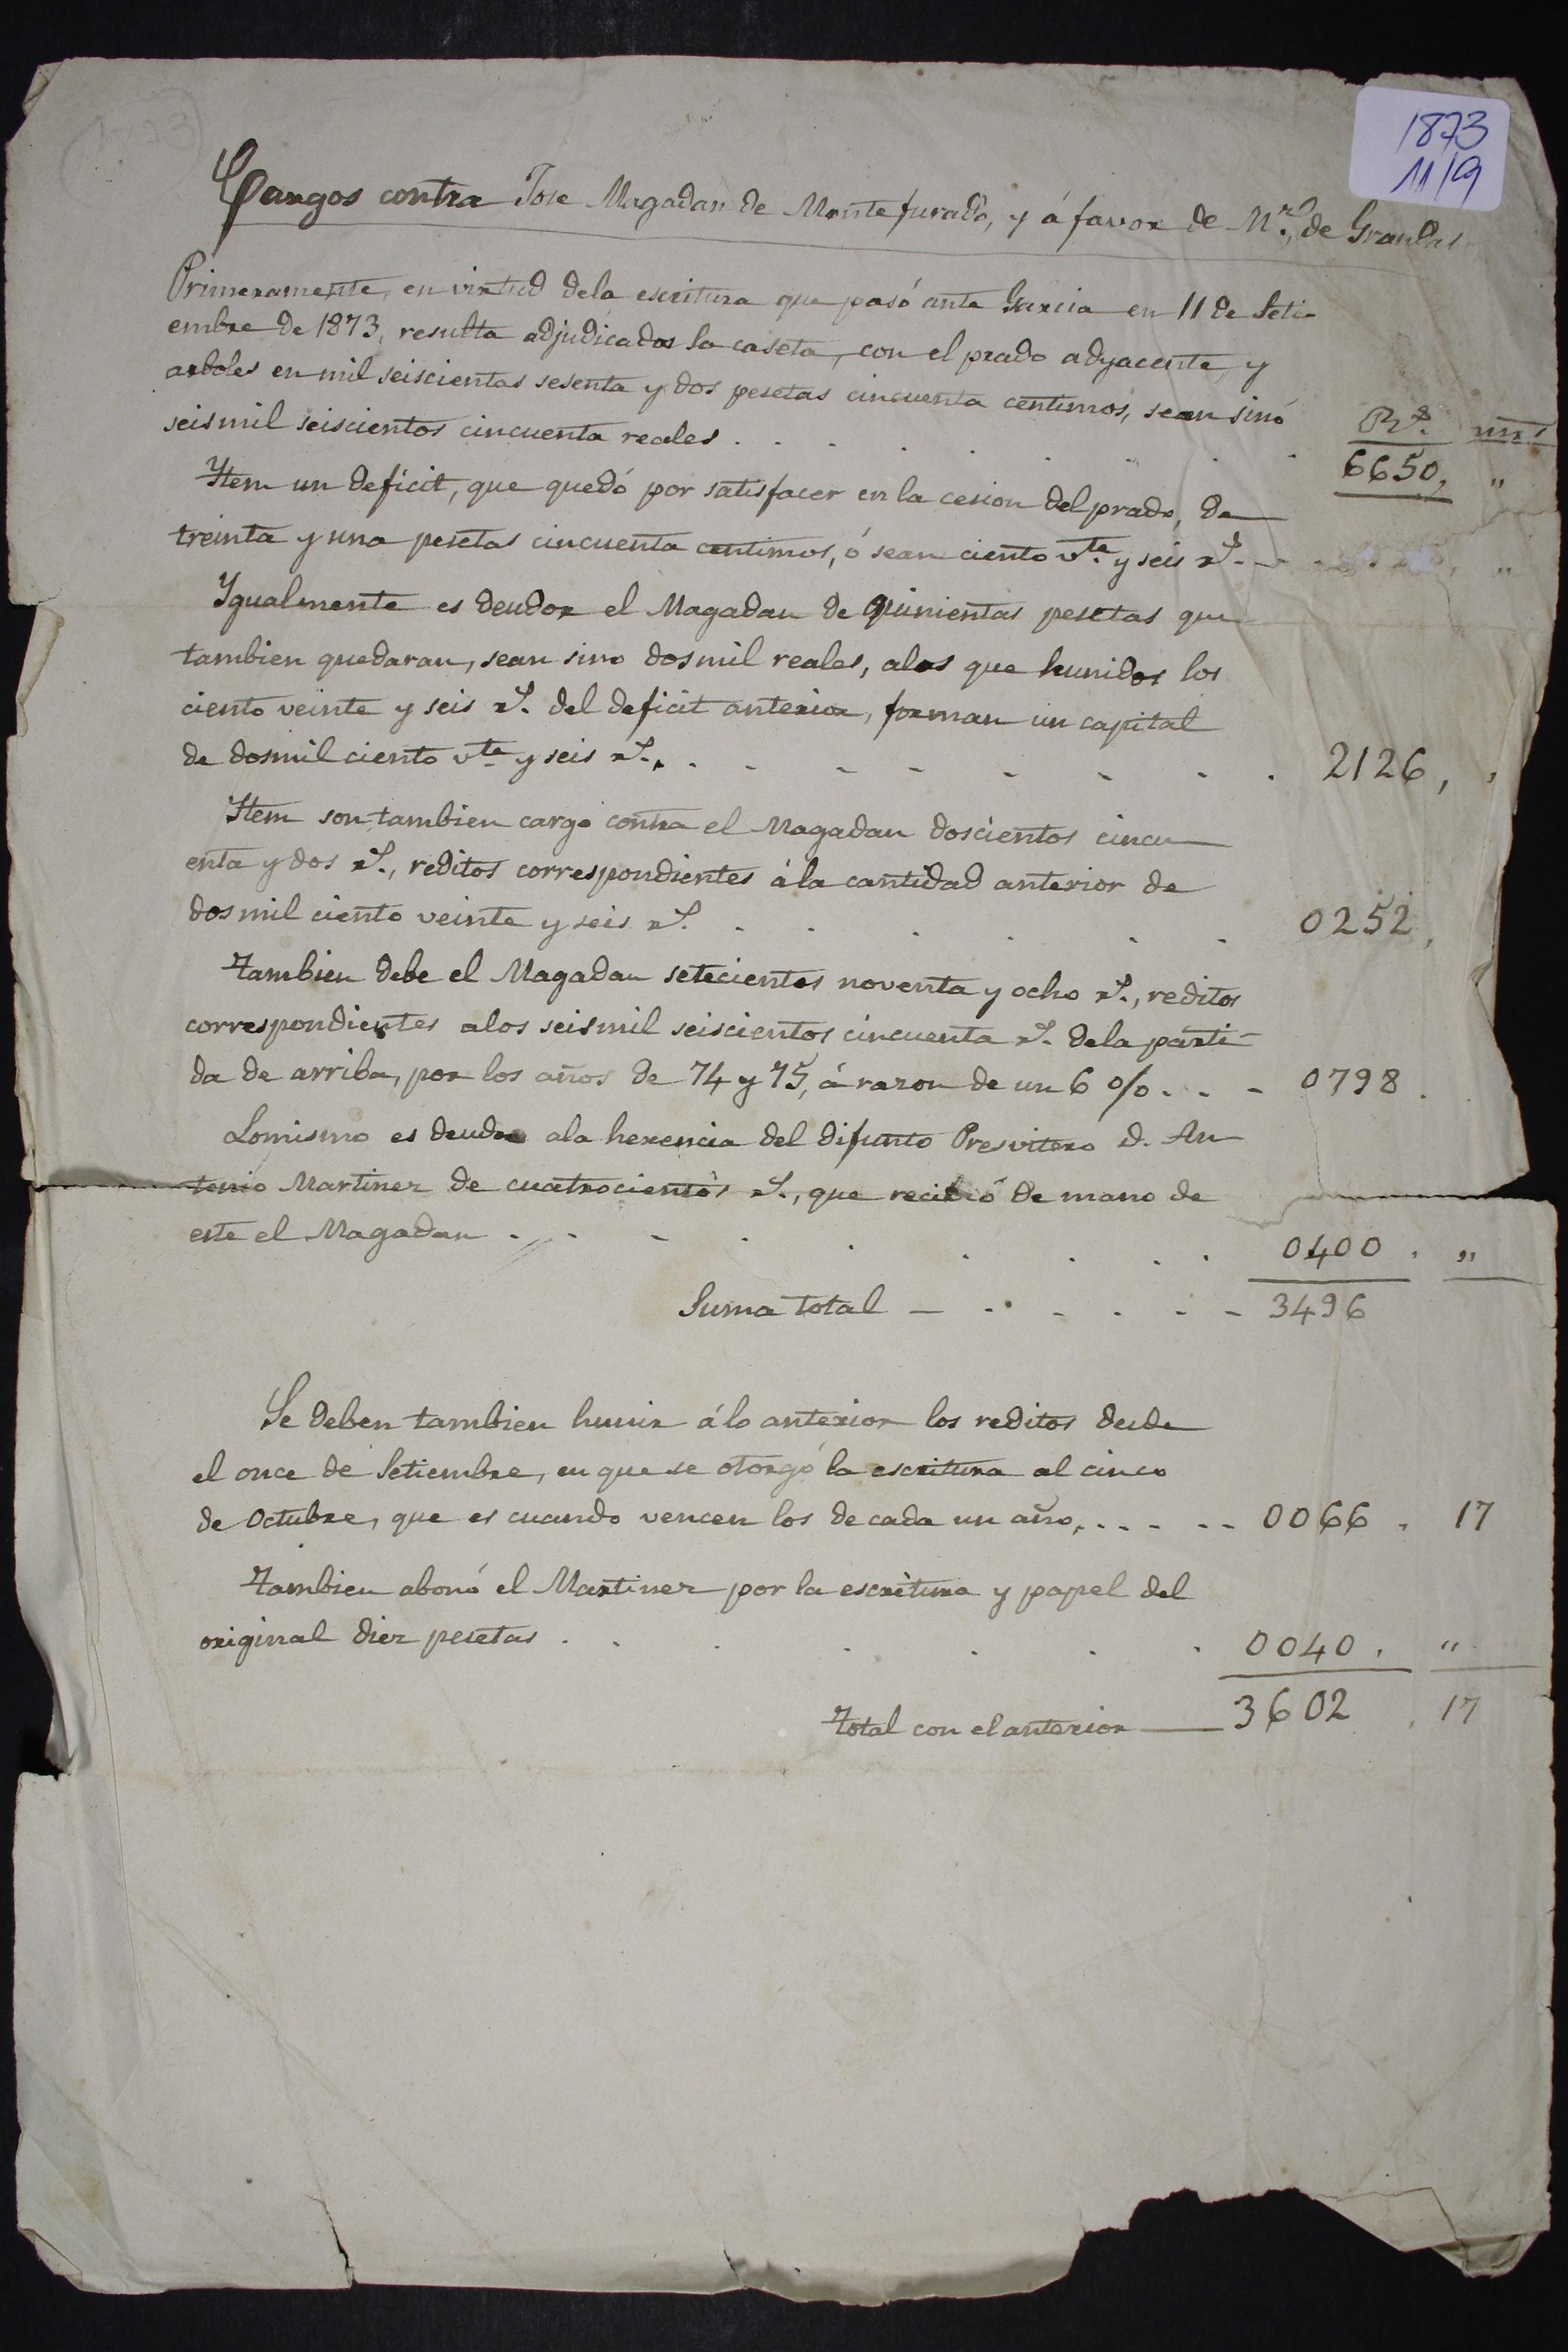 1873
11/9
Cargos contra Jose Magadan de Montefurado, y á favor de M.rz, de Grandas
Primeramente, en virtud dela escritura que pasó ante Garcia en 11 de Seti-
embre de 1873, resulta adjudicados la caseta, con el prado adyacente, y
arboles en mil seiscientas sesenta y dos pesetas cincuenta centimos, sean sinó
seismil seiscientos cincuenta reales . . . . . . . .
Rs. mrs
6650, "
Item un deficit, que quedó por satisfacer en la cesion del prado, de
treinta y una pesetas cincuenta centimos, ó sean ciento vte. y seis rs. - "
Ygualmente es deudor el Magadan de quinientas pesetas que
tambien quedaran, sean sino dosmil reales, alos que hunidos los
ciento veinte y seis rs. del deficit anterior, forman un capital
de dosmil ciento vte. y seis rs. . - - - - - - . 2126, ,
Item son tambien cargo contra el Magadan doscientos cincu
enta y dos rs., reditos correspondientes ála cantidad anterior de
dosmil ciento veinte y seis rs. . . . . . . 0252,
Tambien debe el Magadan setecientos noventa y ocho rs., reditos
correspondientes alos seismil seiscientos cincuenta rs. dela parti-
da de arriba, por los años de 74 y 75, á razon de un 6 %. . - - 0798.
Lomismo es deudor ala herencia del difunto Presvitero D. An
tonio Martinez de cuatrocientos rs., que recibió de mano de
este el Magadan . . - . . . . . . 0400 . "
Suma total - - . - - - - 3496
Se deben tambien hunir álo anterior los reditos desde
el once de Setiembre, en que se otorgó la escritura al cinco
de Octubre, que es cuando vencen los de cada un año, . - - - - 0066 . 17
Tambien abonó el Martinez por la escritura y papel del
original diez pesetas . . . . . . . 0040 . "
Total con el anterior — 3602 . 17